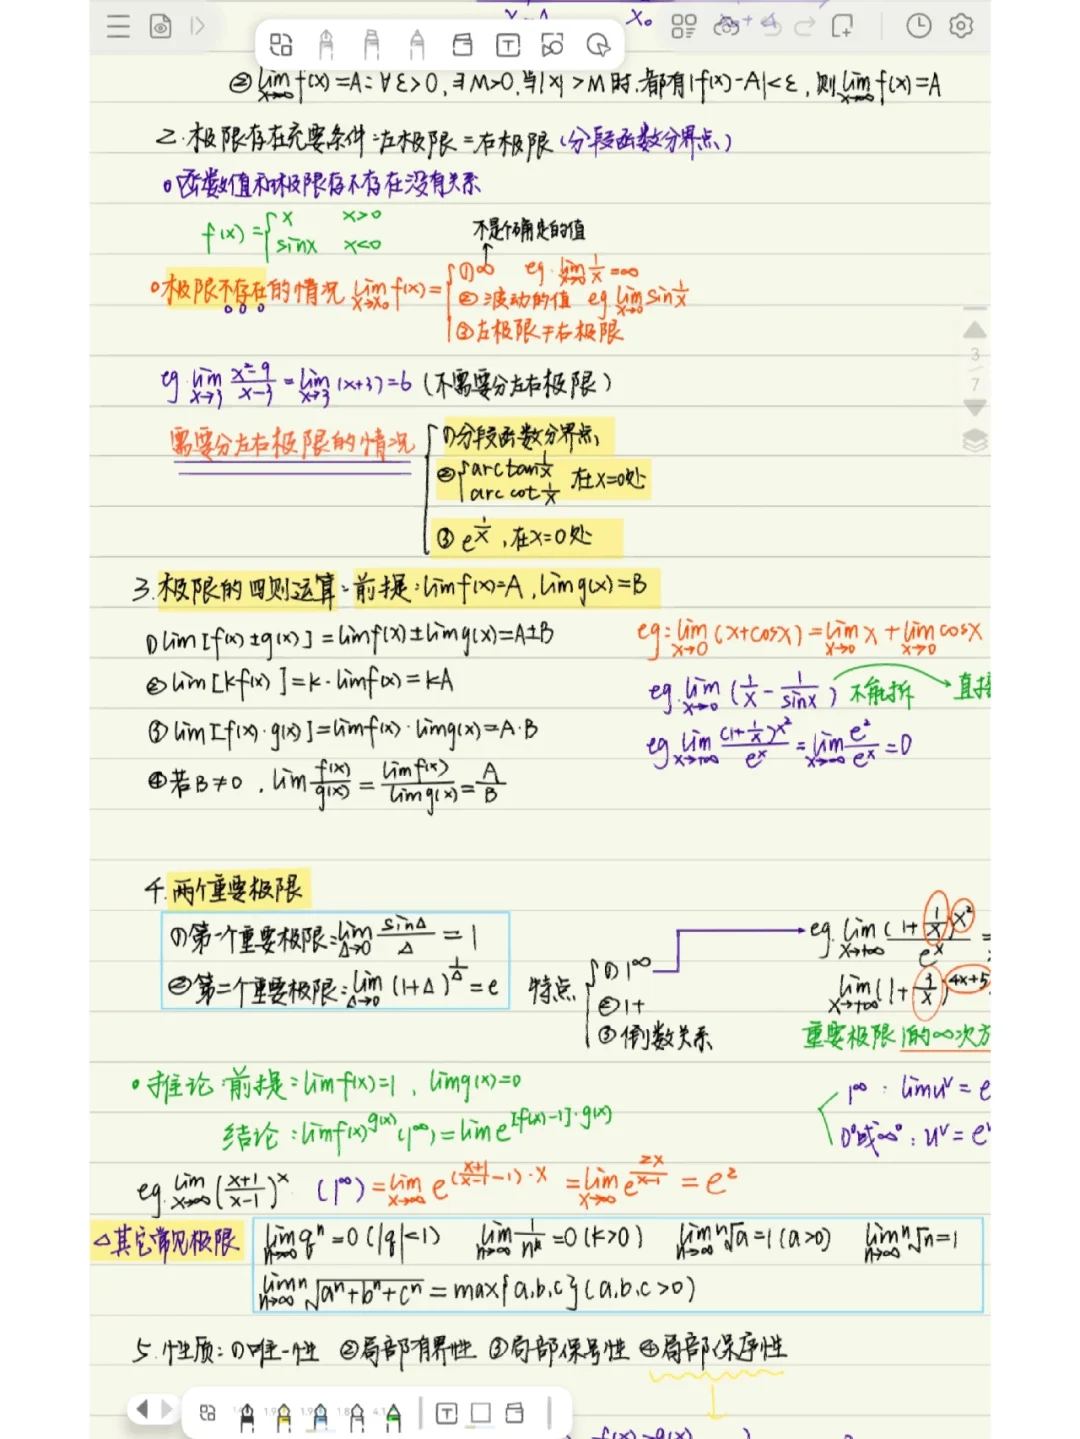 ③ lim_{x→∞} f(x)=A: ∀ε>0, ∃M>0, 当|x|>M时, 都有|f(x)-A|<ε, 则lim_{x→∞} f(x)=A
2. 极限存在充要条件: 左极限=右极限 (分段函数分界点)
函数值和极限存不存在没有关系
f(x)={x x>0
sinx x<0
不是个确定的值
极限不存在的情况 lim_{x→x₀} f(x)=
① ∞ eg. lim_{x→0} 1/x=∞
② 波动的值 eg. lim_{x→0} sin 1/x
③ 左极限≠右极限
eg. lim_{x→3} (x²-9)/(x-3) = lim_{x→3} (x+3)=6 (不需要分左右极限)
需要分左右极限的情况
① 分段函数分界点
② {arctan 1/x
arccot 1/x 在x=0处
③ e^{1/x}, 在x=0处
3. 极限的四则运算: 前提: limf(x)=A, limg(x)=B
① lim[f(x)±g(x)]=limf(x)±limg(x)=A±B
eg: lim_{x→0} (x+cosx)=lim_{x→0} x+lim_{x→0} cosx
② lim[kf(x)]=k·limf(x)=kA
eg. lim_{x→0} (1/x - 1/sinx) 不能拆 直接
③ lim[f(x)·g(x)]=limf(x)·limg(x)=A·B
eg. lim_{x→+∞} (1+1/x)^{x²}/e^x = lim_{x→∞} e²/e^x =0
④ 若B≠0, lim f(x)/g(x) = limf(x)/limg(x) = A/B
4. 两个重要极限
① 第一个重要极限: lim_{Δ→0} sinΔ/Δ = 1
② 第二个重要极限: lim_{Δ→0} (1+Δ)^{1/Δ} = e
特点
① 1^∞
② 1+
③ 倒数关系
eg. lim_{x→+∞} (1+1/x)^{x²}/e^x =
lim_{x→+∞} (1+3/x)^{4x+5}
重要极限 1的∞次方
推论 前提: limf(x)=1, limg(x)=0
1^∞: limu^v=e
结论: limf(x)^{g(x)} (1^∞)=lime^{[f(x)-1]·g(x)}
0⁰或∞⁰: u^v=e^v
eg. lim_{x→∞} ((x+1)/(x-1))^x (1^∞) = lim_{x→∞} e^{((x+1)/(x-1)-1)·x} = lim_{x→∞} e^{2x/(x-1)} = e²
△其它常见极限
lim_{n→∞} qⁿ=0 (|q|<1) lim_{n→∞} 1/n^k=0 (k>0) lim_{n→∞} ⁿ√a=1 (a>0) lim_{n→∞} ⁿ√n=1
lim_{n→∞} ⁿ√(aⁿ+bⁿ+cⁿ)=max{a,b,c} (a,b,c>0)
5. 性质: ①唯一性 ②局部有界性 ③局部保号性 ④局部保序性
3
7